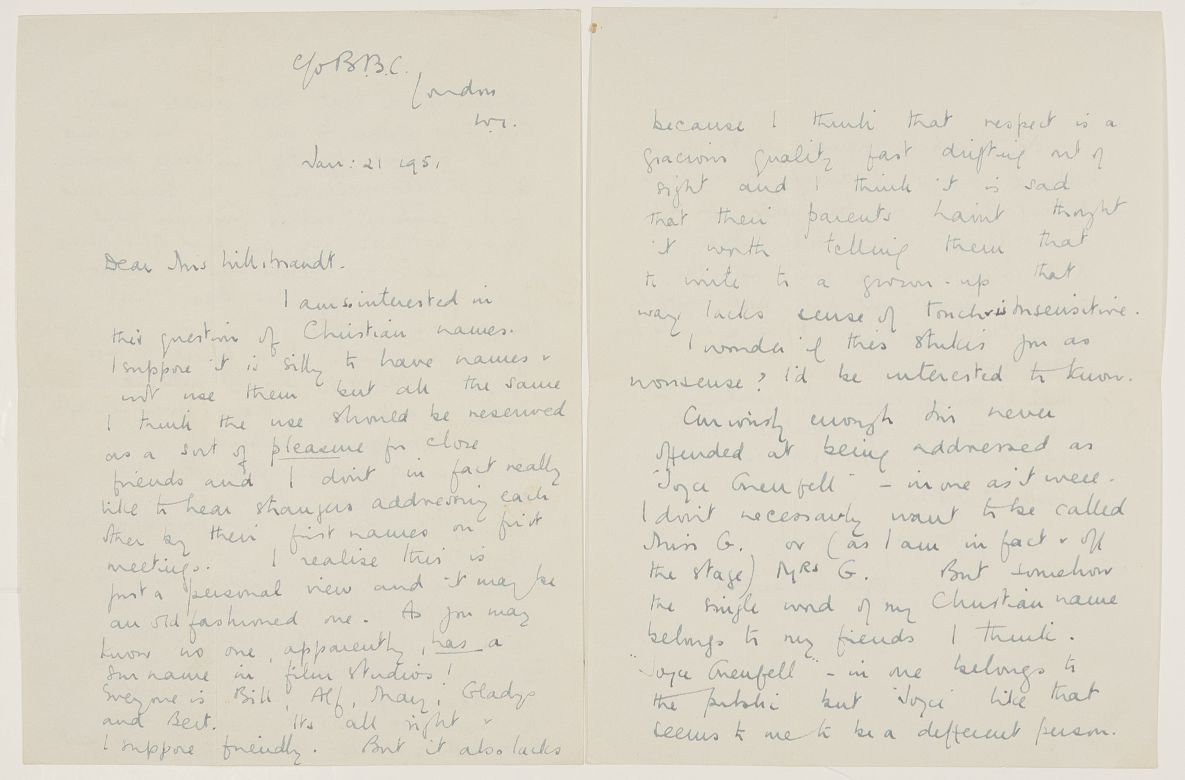 c/o B.B.C.
London
W.1.
Jan: 21 1951
Dear Miss Hillsbrandt.
I am so interested in
this question of Christian names.
I suppose it is silly to have names &
not use them but all the same
I think the use should be reserved
as a sort of pleasure for close
friends and I don't in fact really
like to hear strangers addressing each
other by their first names on first
meetings. I realise this is
just a personal view and it may be
an old fashioned one. As you may
know no one, apparently, has a
surname in film studios!
Everyone is Bill, Alf, Mary, Gladys
and Bert. Its all right &
I suppose friendly. But it also lacks
because I think that respect is a
gracious quality fast drifting out of
sight and I think it is sad
that their parents haven't thought
it worth telling them that
to write to a grown-up that
way lacks sense of touch & is insensitive.
I wonder if this strikes you as
nonsense? I'd be interested to know.
Curiously enough I'm never
offended at being addressed as
"Joyce Grenfell" — in one as it were.
I don't necessarily want to be called
Miss G. or (as I am in fact & off
the stage) Mrs G. But somehow
the single word of my Christian name
belongs to my friends I think.
"Joyce Grenfell" - in one belongs to
the public but 'Joyce' like that
seems to me to be a different person.